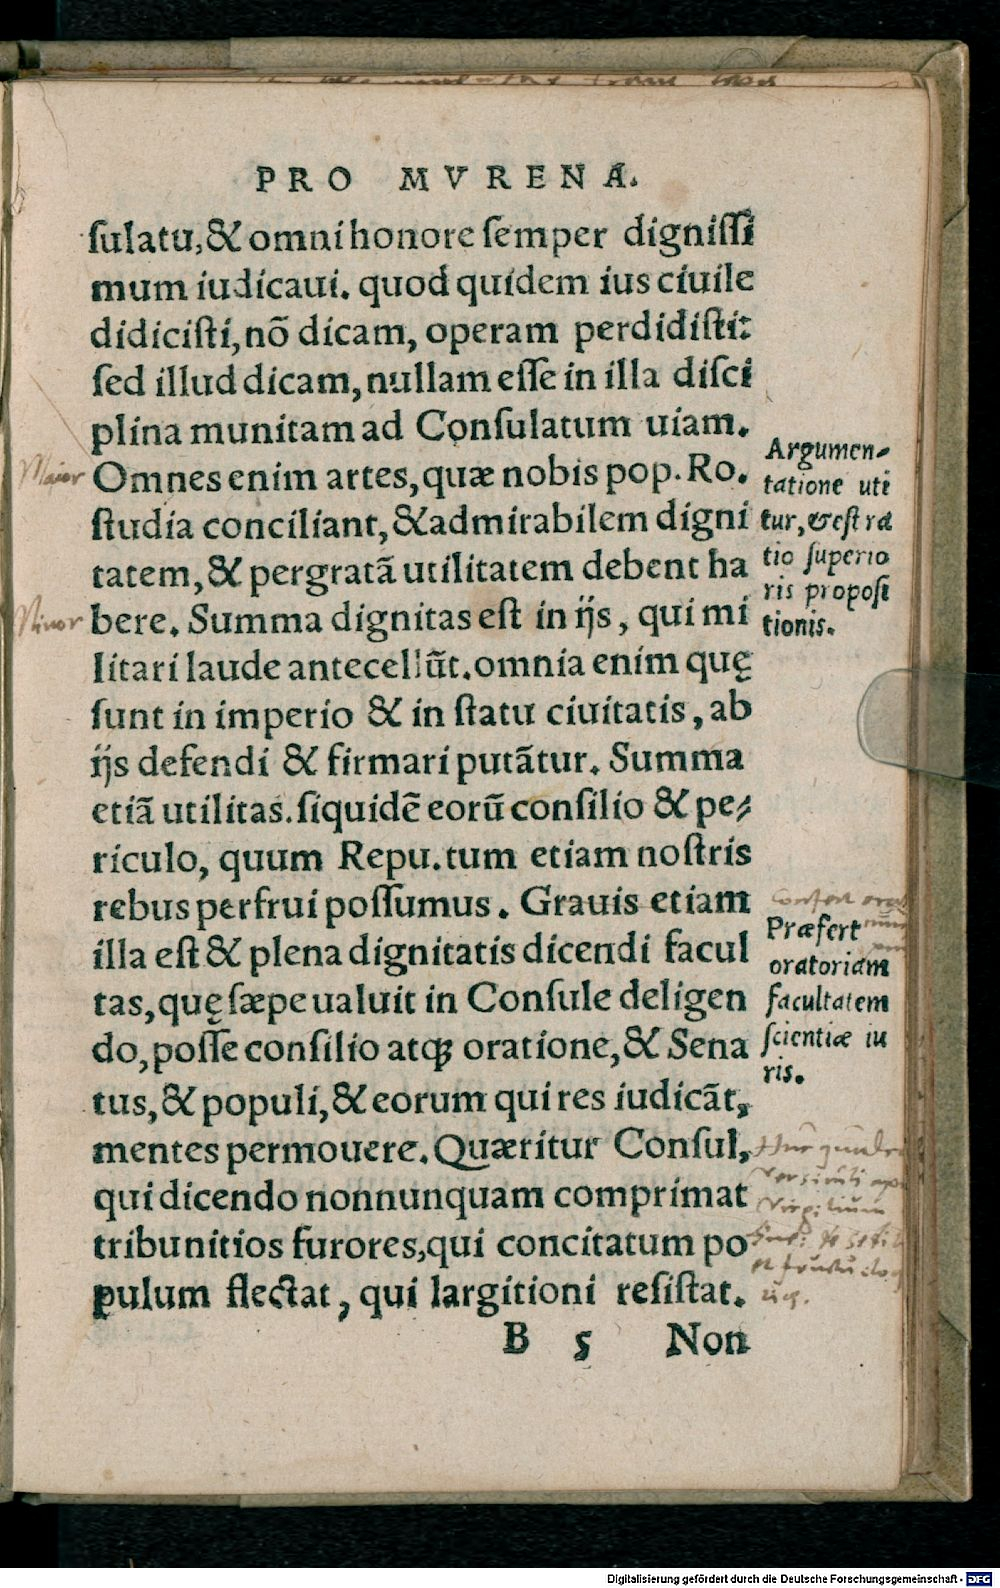 PRO MVRENA.
sulatu, & omni honore semper dignissi
mum iudicaui. quod quidem ius ciuile
didicisti, nõ dicam, operam perdidisti:
sed illud dicam, nullam esse in illa disci
plina munitam ad Consulatum uiam.
Omnes enim artes, quæ nobis pop. Ro.
studia conciliant, & admirabilem digni
tatem, & pergratã utilitatem debent ha
bere. Summa dignitas est in ijs, qui mi
litari laude antecellũt. omnia enim quę
sunt in imperio & in statu ciuitatis, ab
ijs defendi & firmari putãtur. Summa
etiã utilitas. siquidẽ eorũ consilio & pe-
riculo, quum Repu. tum etiam nostris
rebus perfrui possumus. Grauis etiam
illa est & plena dignitatis dicendi facul
tas, quę sæpe ualuit in Consule deligen
do, posse consilio atq; oratione, & Sena
tus, & populi, & eorum qui res iudicãt,
mentes permouere. Quæritur Consul,
qui dicendo nonnunquam comprimat
tribunitios furores, qui concitatum po
pulum flectat, qui largitioni resistat.
B 5 Non
Maior
Minor
Argumen-
tatione uti
tur, & est ra
tio superio
ris proposi
tionis.
Præfert
oratoriam
facultatem
scientiæ iu
ris.
Virgilium
Digitalisierung gefördert durch die Deutsche Forschungsgemeinschaft - DFG